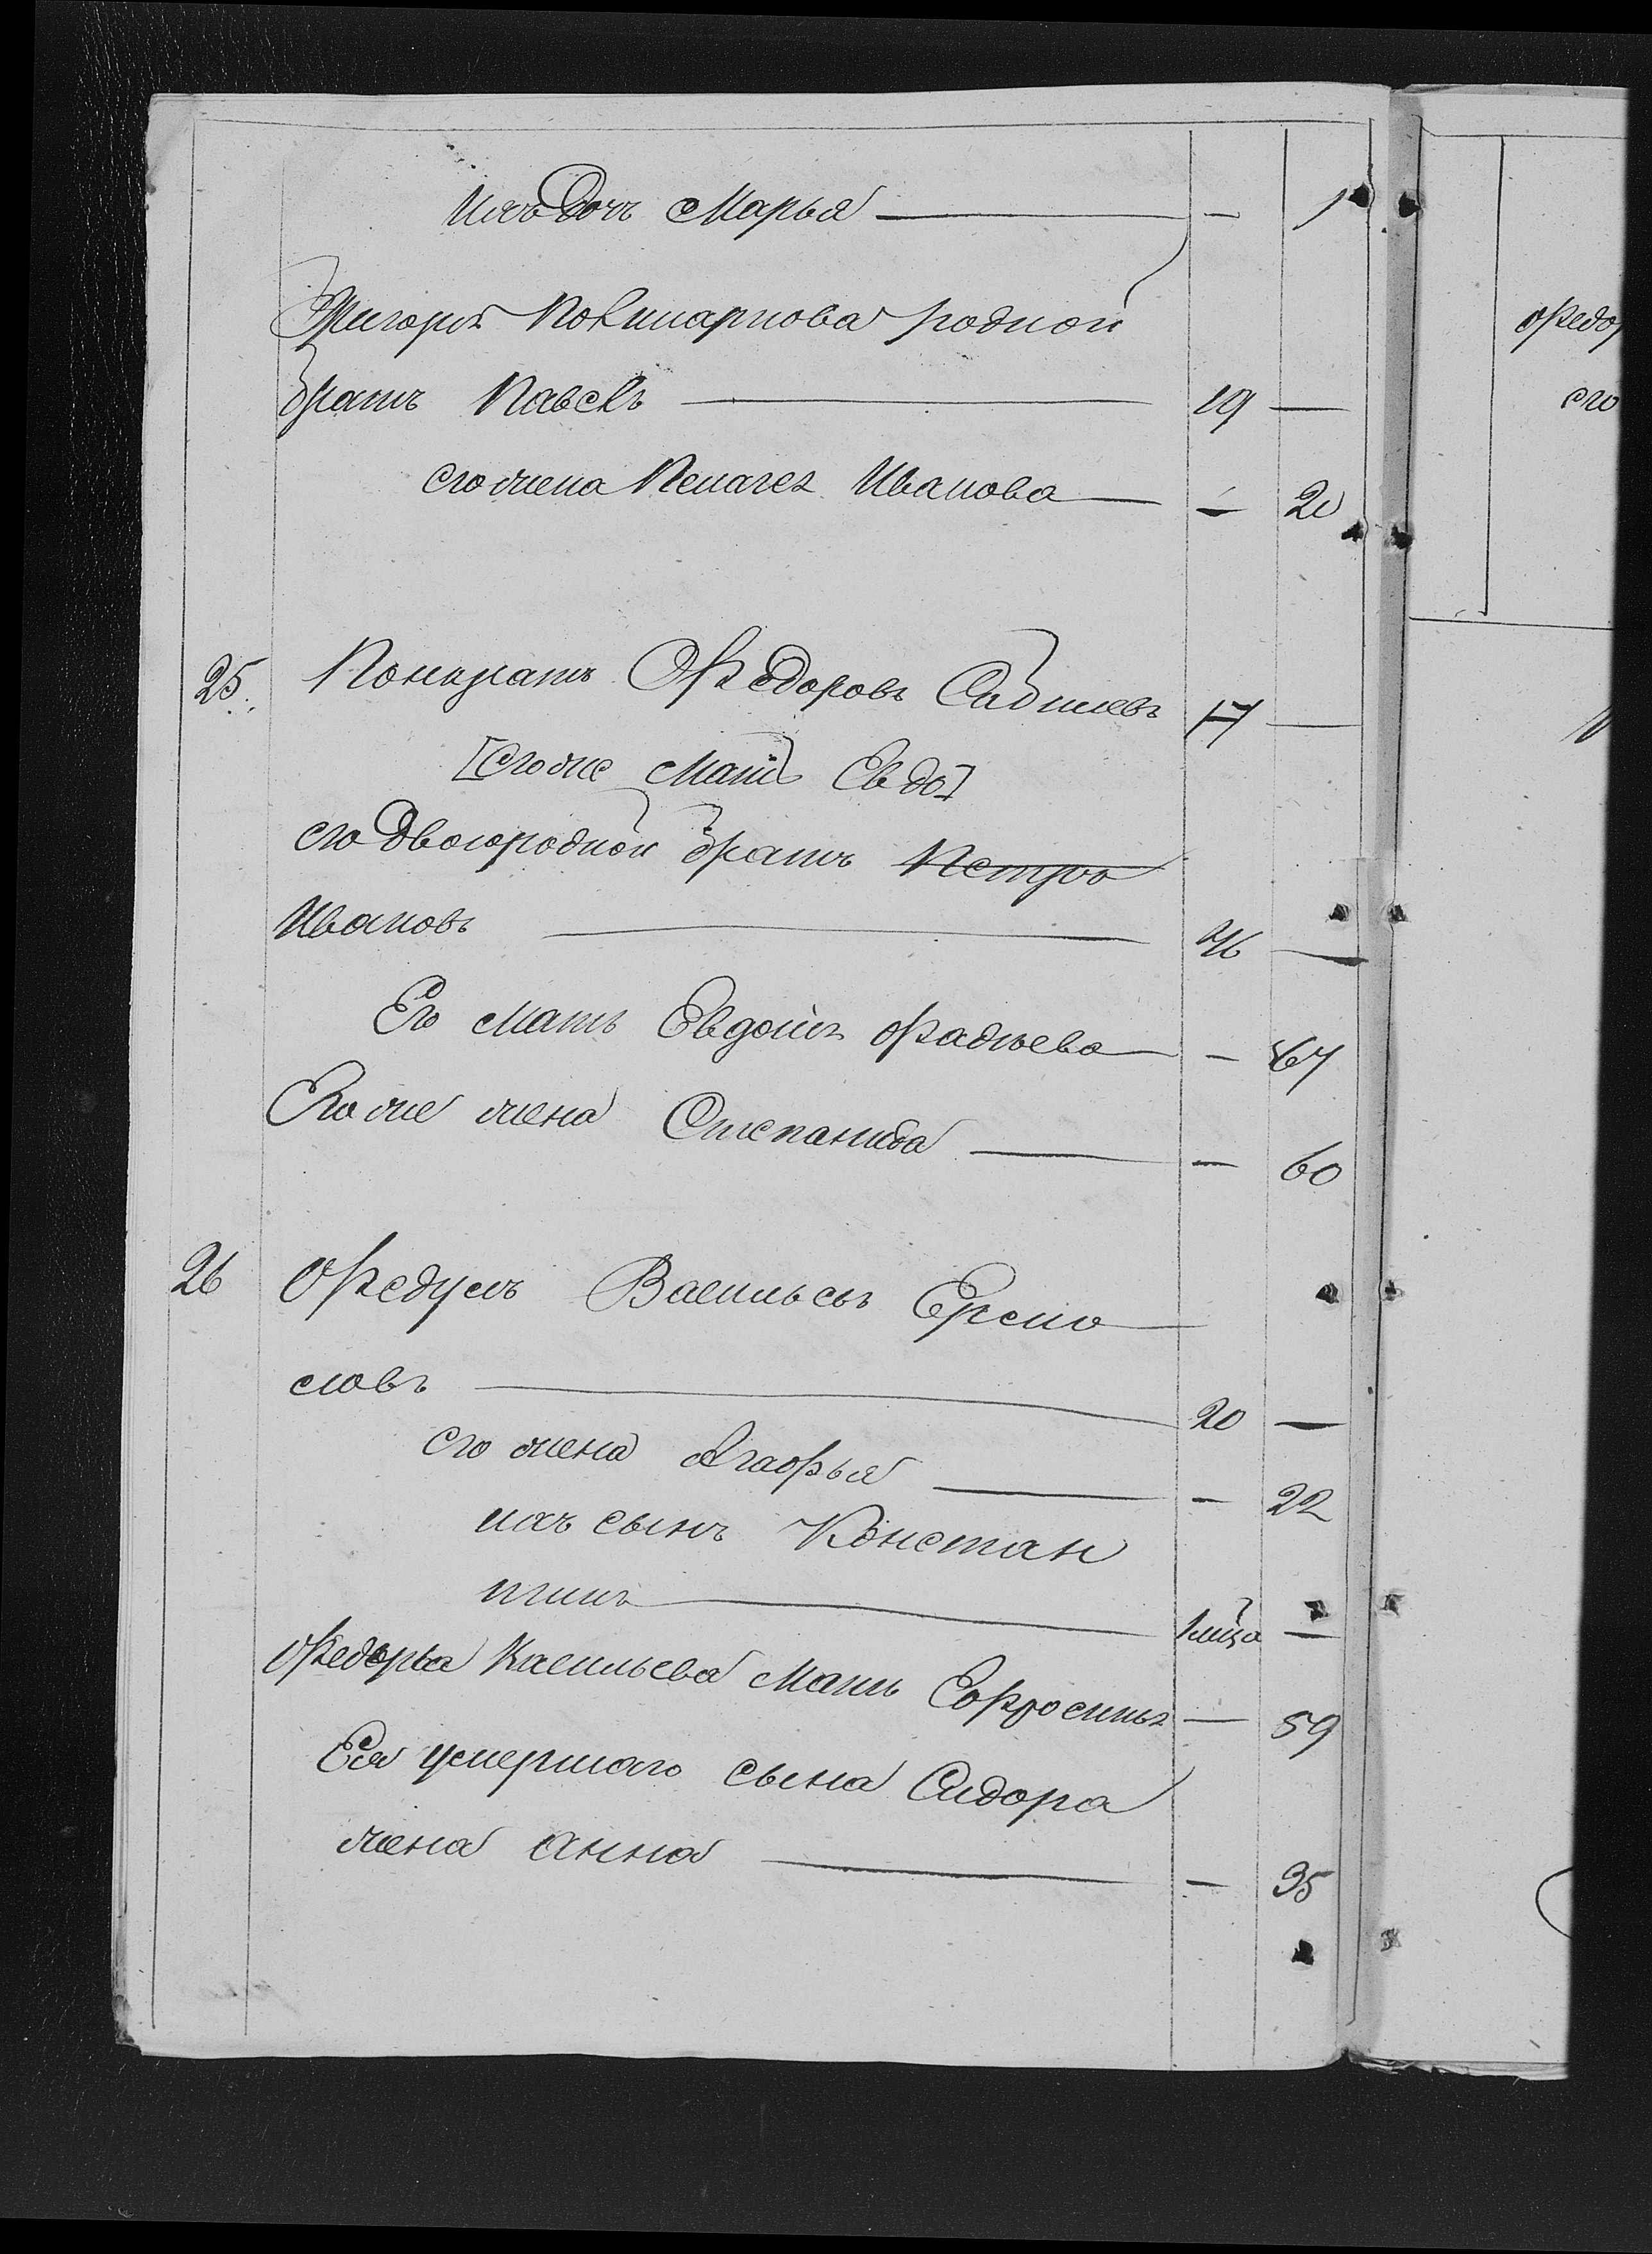 Ихъ дочь Марья — — 1
Григорья Поликарпова родной
братъ Павелъ — 19 —
его жена Пелагея Иванова — — 20
25. Кондратъ Федоровъ 17 —
[Его же Мать Евдо]
его Двоюродной братъ Петръ
Ивановъ — 46 —
Его Мать Евдокия Фадѣева — — 67
Его же жена Степанида — — 60
26 Федулъ Васильевъ Ермо
ловъ — 20 —
его жена Агафья — — 22
ихъ сынъ Констан
тинъ — —
Васильева Мать Ефросинья — 59
Ея умершаго сына Сидора
жена Анна — — 35
Федо
его